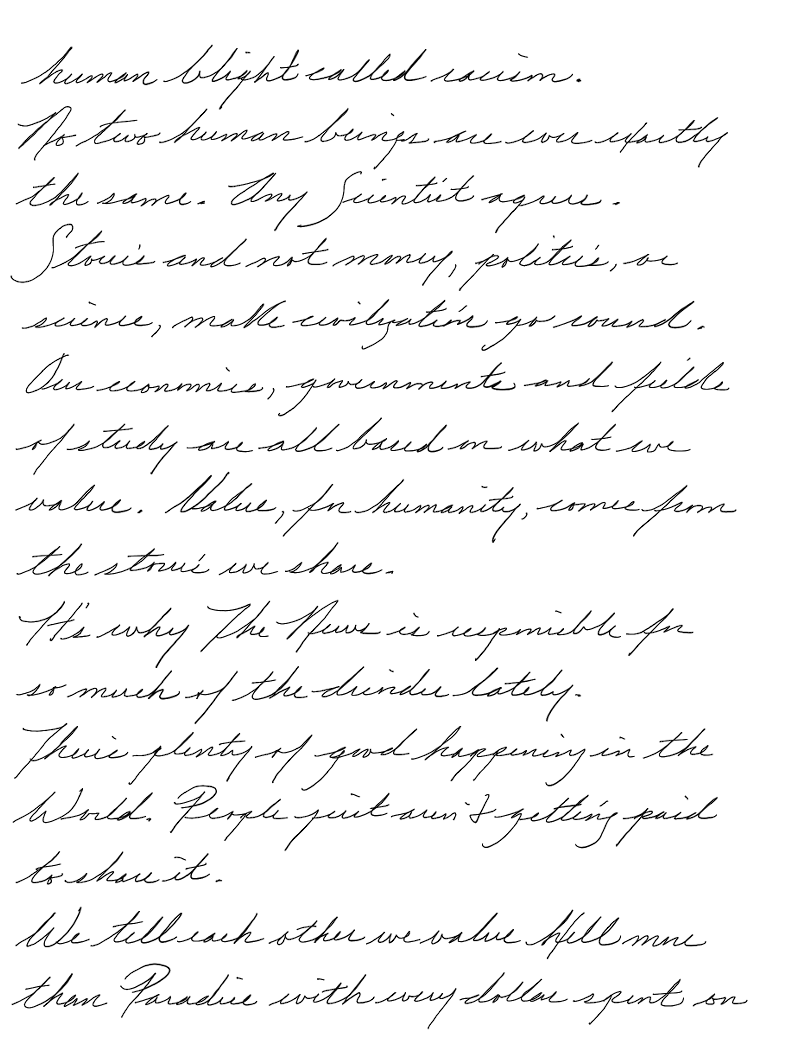 human blight called racism.
No two human beings are ever exactly
the same. Any Scientist agrees.
Stories and not money, politics, or
science, make civilization go round.
Our economies, governments and fields
of study are all based on what we
value. Value, for humanity, comes from
the stories we share.
It's why The News is responsible for
so much of the divide lately.
There's plenty of good happening in the
World. People just aren't getting paid
to share it.
We tell each other we value Hell more
than Paradise with every dollar spent on